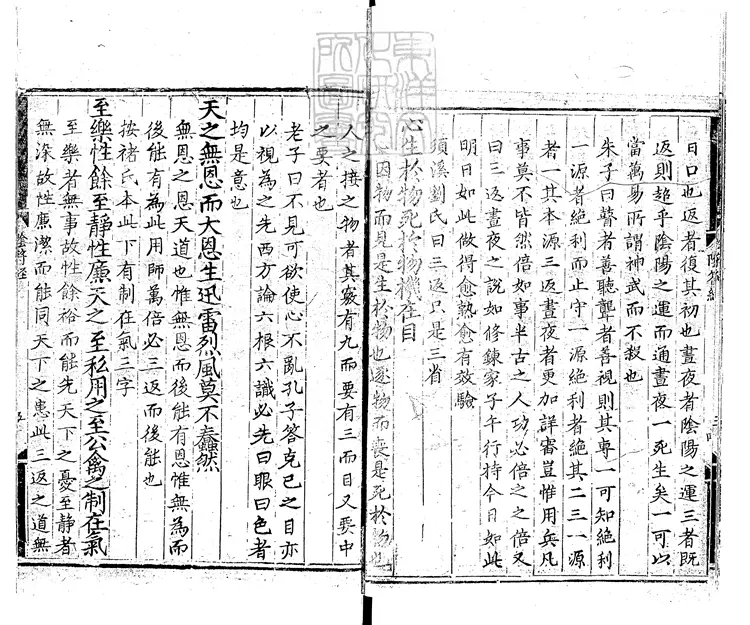 目口也返者復其初也晝夜者陰陽之運三者既
返則超乎陰陽之運而通晝夜一死生矣一可以
當萬易所謂神武而不殺也
朱子曰瞽者善聽聾者善視則其專一可知絶利
一源者絶利而止守一源絶利者絶其二三一源
者一其本源三返晝夜者更加詳審豈惟用兵凡
事莫不皆然倍如事半古之人功必倍之之倍又
曰三返晝夜之說如修鍊家子午行持今日如此
明日如此做得愈熟愈有效驗
須溪劉氏曰三返只是三省
心生於物死於物機在目
因物而見是生於物也逐物而喪是死於物也
人之接之物者其竅有九而要有三而目又要中
之要者也
老子曰不見可欲使心不亂孔子答克己之目亦
以視為之先西方論六根六識必先曰眼曰色者
均是意也
天之無恩而大恩生迅雷烈風莫不蠢然
無恩之恩天道也惟無恩而後能有恩惟無為而
後能有為此用師萬倍必三返而後能也
按褚氏本此下有制在氣三字
至樂性餘至靜性廉天之至私用之至公禽之制在氣
至樂者無事故性餘裕而能先天下之憂至靜者
無染故性廉潔而能同天下之患此三返之道無
陰符經